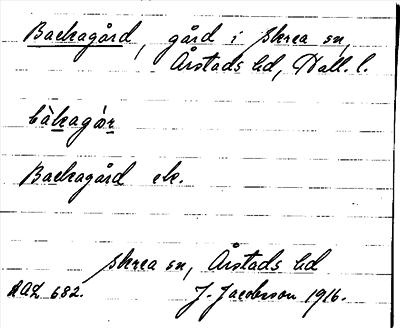 Backagård, gård i Skrea sn,
Årstads hd, Hall. l.
bàkagàr
Backagård ek.
Skrea sn, Årstads hd
AAL 682. J. Jacobsson 1916.